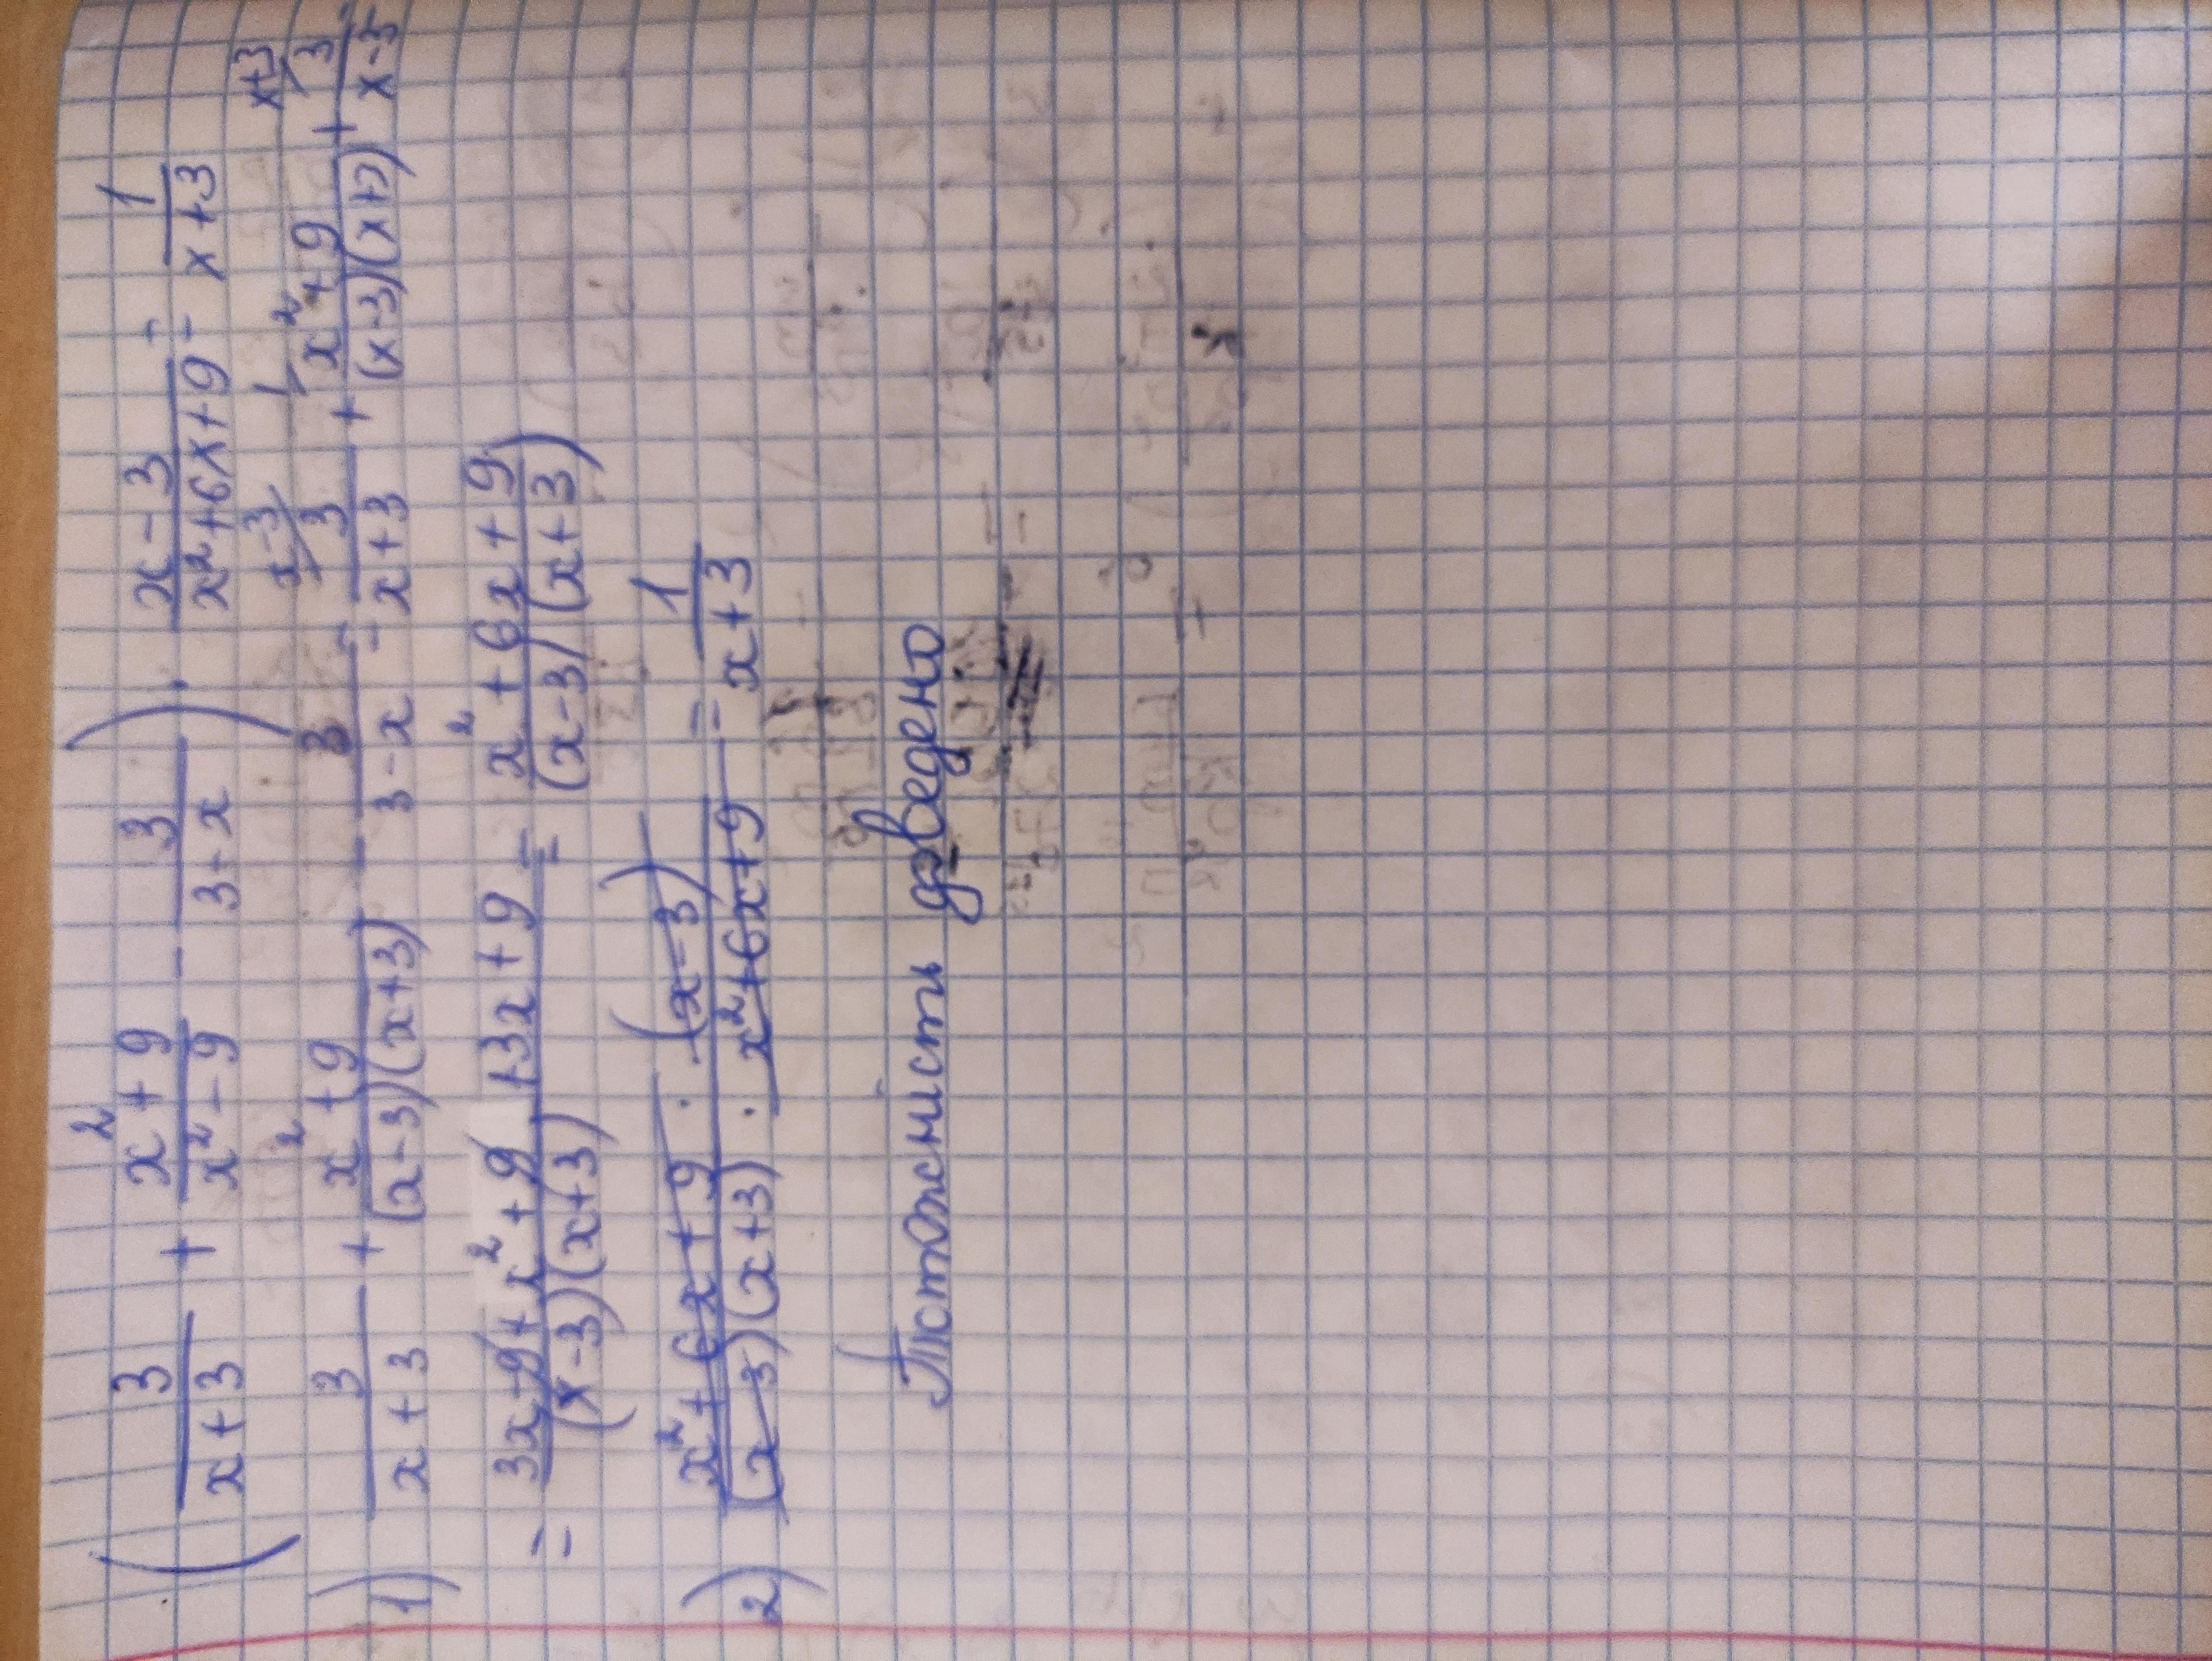 ( 3/(x+3) + (x²+9)/(x²-9) - 3/(3-x) ) · (x-3)/(x²+6x+9) = 1/(x+3)
1) 3/(x+3) + (x²+9)/((x-3)(x+3)) - 3/(3-x) = ˣ⁻³⁄ 3/(x+3) + ¹⁄ (x²+9)/((x-3)(x+3)) + ˣ⁺³⁄ 3/(x-3)
= (3x-9+x²+9+3x+9)/((x-3)(x+3)) = (x²+6x+9)/((x-3)(x+3))
2) (x²+6x+9 · (x-3))/((x-3)(x+3) · x²+6x+9) = 1/(x+3)
Тотожність доведено